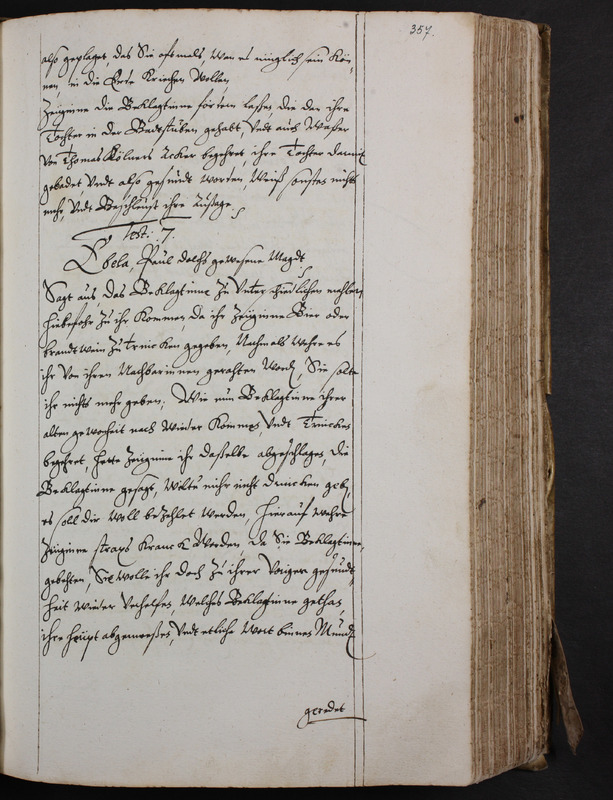 357.
also geplaget, das Sie oftmals, Wan es müglich sein kön-
nen, in die Erte kriechen wollen,
Zeuginne die Beklagtinne fördern lassen, die den ihre
Tochter in der Badtstuben gehabt Undt auch Wasser
Von Thomas Kölners Acker begehret, ihre Tochter damit
gebadet Undt also gesundt worden, Weiß sonsten nichts
mehr, Undt Beschleust ihre Aussage.
Testi: 7.
Ebela, Paul gewesene Magdt
Sagt aus, das Beklagtinne zu Unterschiedlichen mahlen
hiebefohr zu ihr kommen, da ihr Zeuginne Bier oder
brandtwein zu trincken gegeben, Nachmals wehre es
ihr Von ihren Nachbarinnen gerahten word, Sie solte
ihr nichts mehr geben, Wie nun Beklagtinne ihrer
alten gewonheit nach wieder kommen, Undt Trincken
begehret, hette Zeuginne ihr dasselbe abgeschlagen, die
Beklagtinne gesagt, Wiltu mihr nicht drincken geben,
es soll dir woll bezahlet werden, hierauf wehre
Zeuginne straxs kranck Worden, da Sie Beklagtinne,
gebehten, Sie wolle ihr doch zu ihrer Vorigen gesundt-
heit wieder Verhelfen, Welches Beklagtinne gethan,
ihre haupt abgemessen, Undt etliche Wort binnen Mundes
geredet